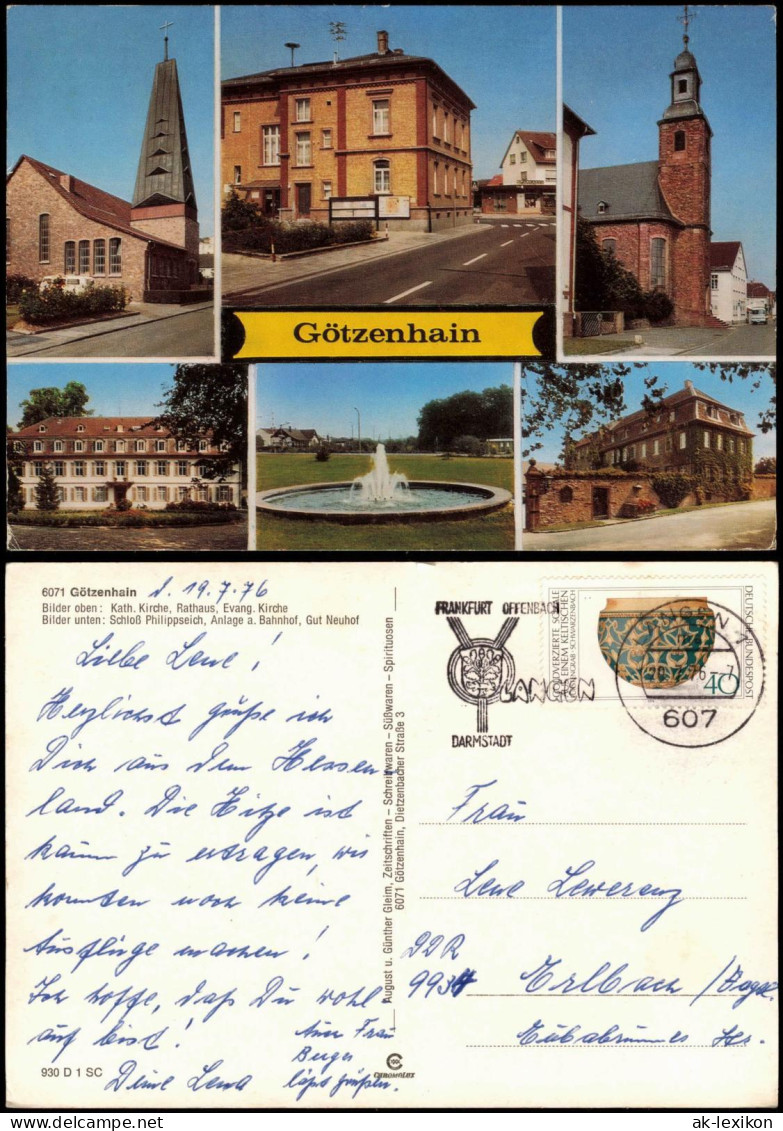 Götzenhain
6071 Götzenhain d. 19.7.76
Bilder oben: Kath. Kirche, Rathaus, Evang. Kirche
Bilder unten: Schloß Philippseich, Anlage a. Bahnhof, Gut Neuhof
Liebe Lene!
Herzlichst grüße ich
Dich aus dem Hessen-
land. Die Hitze ist
kaum zu ertragen, wir
konnten noch keine
Ausflüge machen!
Ich hoffe, daß Du wohl-
auf bist!
Deine Lena
Frau
läßt grüßen.
930 D 1 SC
CHROMOLUX
August u. Günther Gleim, Zeitschriften – Schreibwaren – Süßwaren – Spirituosen
6071 Götzenhain, Dietzenbacher Straße 3
FRANKFURT OFFENBACH
LANGEN
DARMSTADT
GOLDVERZIERTE SCHALE
AUS EINEM KELTISCHEN
FÜRSTENGRAB · SCHWARZENBACH
DEUTSCHE BUNDESPOST
40
LANGEN
607
Frau
Lene Lewerenz
DDR
993
Erlbach / Vogtl.
Eubabrunner Str.
ak-lexikon